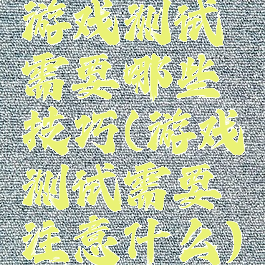 游戏测试
需要哪些
技巧(游戏
测试需要
注意什么)